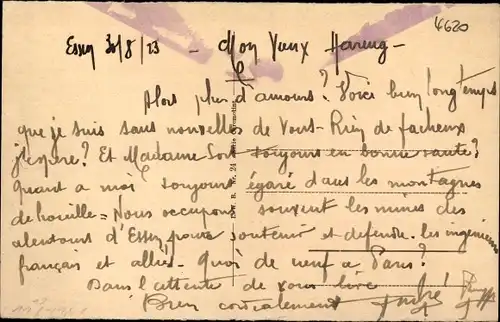 4620
Essen 30/8/23 - Mon Vieux Hareng -
Alors plus d'amours? Voici bien longtemps
que je suis sans nouvelles de Vous - Rien de facheux
j'espère? Et Madame toujours en bonne santé?
Quant a moi toujours égaré dans les montagnes
de houille = Nous occupons souvent les mines des
alentours d'Essen pour soutenir et defendre les ingénieurs
français et alliés. Quoi de neuf a Paris?
Dans l'attente de vous lire
Bien cordialement André